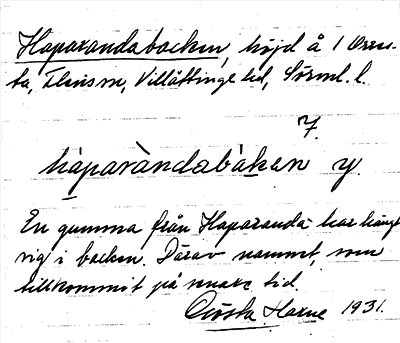 Haparandabacken, höjd å 1 Orrsu-
ta, Flens sn, Villåttinge hd, Sörml. l.
7.
hàparàndabàken y.
En gumma från Haparanda har hängt
sig i backen. Därav namnet, som
tillkommit på senare tid.
Gösta Harne 1931.